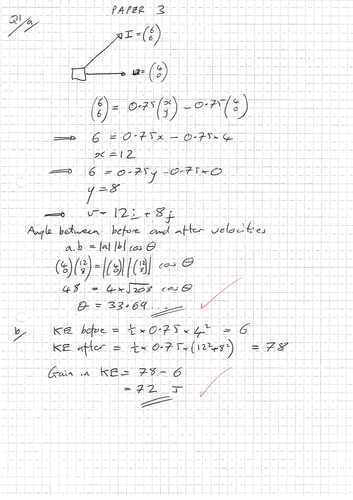 PAPER 3
Q1/a
I = (6 6)
u = (4 0)
(6 6) = 0.75(x y) - 0.75(4 0)
⟹ 6 = 0.75x - 0.75×4
x = 12
⟹ 6 = 0.75y - 0.75×0
y = 8
⟹ v = 12i + 8j
Angle between before and after velocities
a.b = |a||b| cos θ
(4 0)(12 8) = |(4 0)||(12 8)| cos θ
48 = 4×√208 cos θ
θ = 33.69....
b, KE before = ½ × 0.75 × 4² = 6
KE after = ½ × 0.75 × (12²+8²) = 78
Gain in KE = 78 - 6
= 72 J